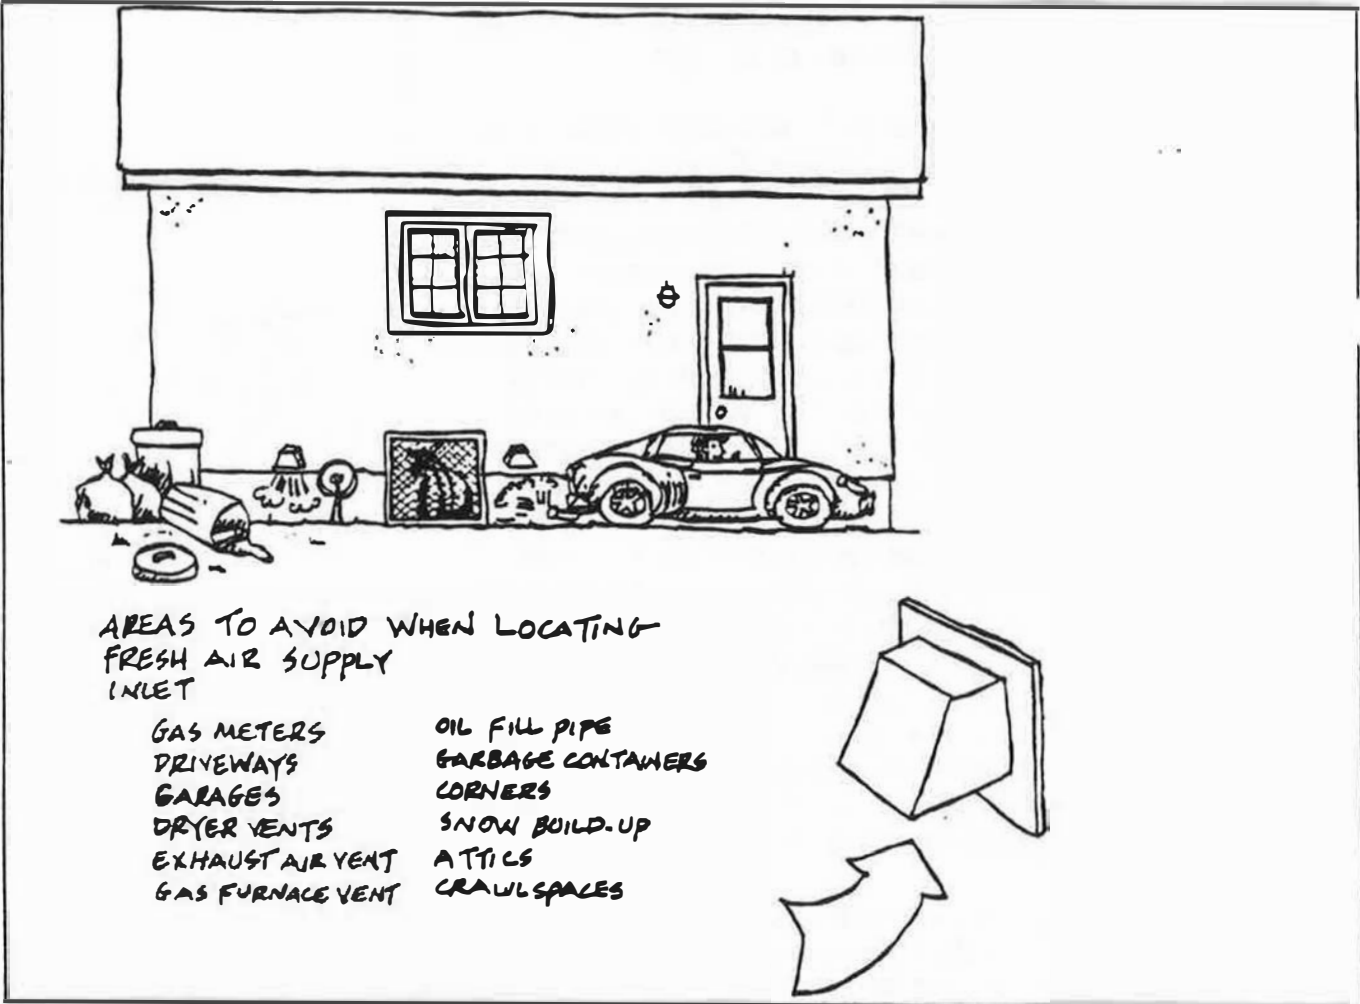 AREAS TO AVOID WHEN LOCATING
FRESH AIR SUPPLY
INLET
GAS METERS
DRIVEWAYS
GARAGES
DRYER VENTS
EXHAUST AIR VENT
GAS FURNACE VENT
OIL FILL PIPE
GARBAGE CONTAINERS
CORNERS
SNOW BUILD-UP
ATTICS
CRAWLSPACES